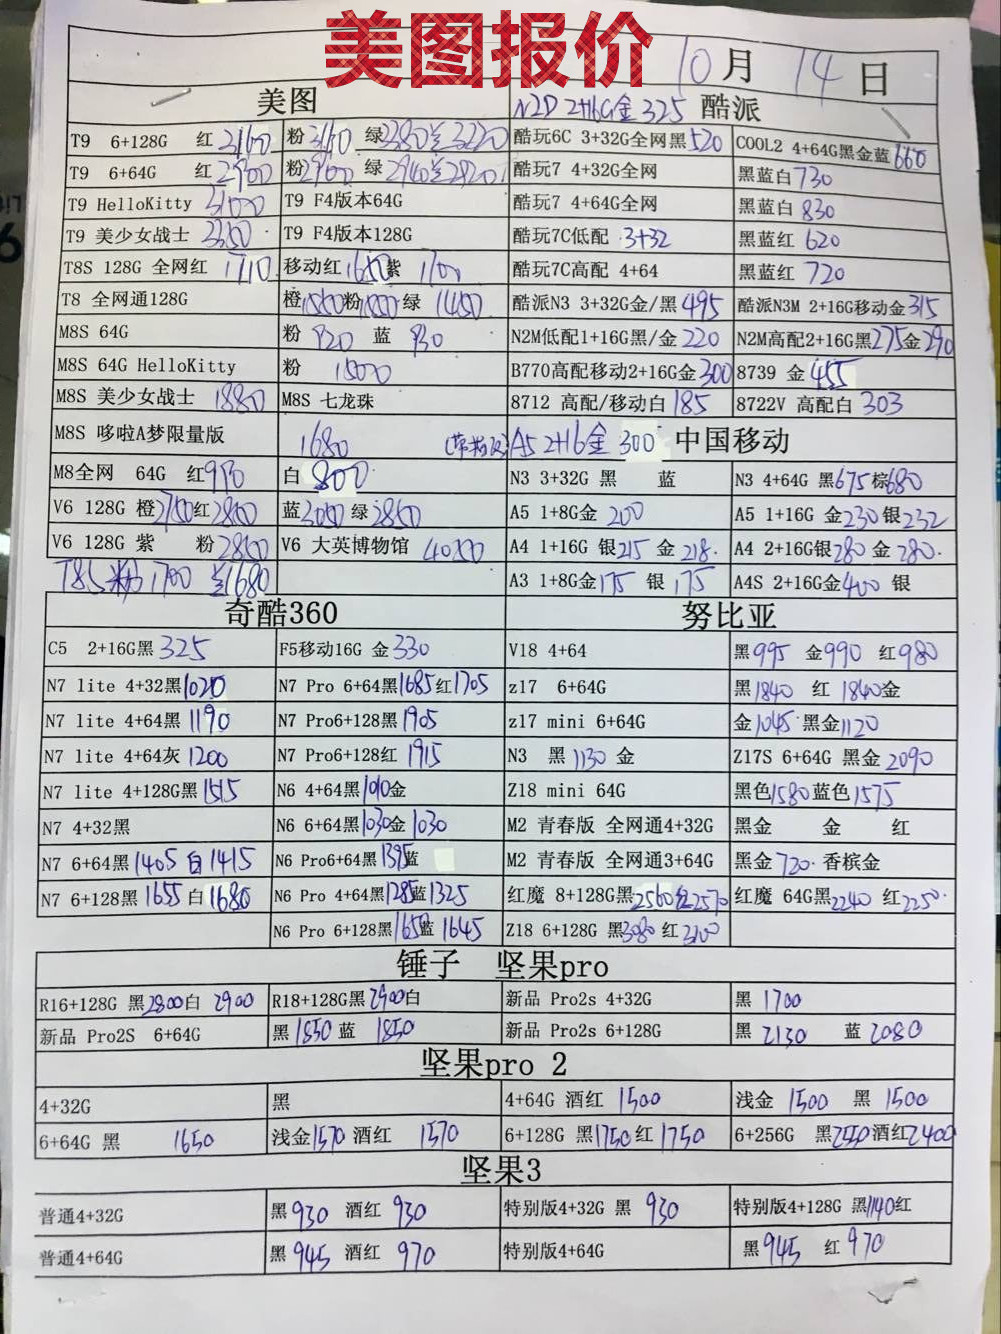 美图报价
10月 14日
美图 N2D 2+16G金 325 酷派
T9 6+128G 红 粉 绿 酷玩6C 3+32G全网黑520 COOL2 4+64G黑金蓝660
T9 6+64G 红2900 粉2900 绿 酷玩7 4+32G全网 黑蓝白730
T9 HelloKitty T9 F4版本64G 酷玩7 4+64G全网 黑蓝白 830
T9 美少女战士 T9 F4版本128G 酷玩7C低配 3+32 黑蓝红 620
T8S 128G 全网红 1710 移动红 紫 酷玩7C高配 4+64 黑蓝红 720
T8 全网通128G 橙 粉 绿 1450 酷派N3 3+32G金/黑 495 酷派N3M 2+16G移动金315
M8S 64G 粉 920 蓝 930 N2M低配1+16G黑/金 220 N2M高配2+16G黑275金290
M8S 64G HelloKitty 粉 1500 B770高配移动2+16G金300 8739 金 455
M8S 美少女战士 1880 M8S 七龙珠 8712 高配/移动白 185 8722V 高配白 303
M8S 哆啦A梦限量版 1680 A5 2+16金 300 中国移动
M8全网 64G 红 白 800 N3 3+32G 黑 蓝 N3 4+64G 黑675棕680
V6 128G 橙2750红2800 蓝3050 绿2850 A5 1+8G金 200 A5 1+16G 金230银232
V6 128G 紫 粉2800 V6 大英博物馆 A4 1+16G 银215 金 218 A4 2+16G银280 金 280
T8S 粉1700 1680 A3 1+8G金175 银 175 A4S 2+16G金400 银
奇酷360 努比亚
C5 2+16G黑 325 F5移动16G 金330 V18 4+64 黑995 金990 红980
N7 lite 4+32黑1020 N7 Pro 6+64黑1685红1705 z17 6+64G 黑1840 红 1840金
N7 lite 4+64黑 1190 N7 Pro6+128黑1905 z17 mini 6+64G 金1045 黑金1120
N7 lite 4+64灰 1200 N7 Pro6+128红 1915 N3 黑1130 金 Z17S 6+64G 黑金 2090
N7 lite 4+128G黑1515 N6 4+64黑1010金 Z18 mini 64G 黑色1580蓝色1575
N7 4+32黑 N6 6+64黑1030金 1030 M2 青春版 全网通4+32G 黑金 金 红
N7 6+64黑1405 白1415 N6 Pro6+64黑1395蓝 M2 青春版 全网通3+64G 黑金720 香槟金
N7 6+128黑 1655 白1680 N6 Pro 4+64黑1285蓝1325 红魔 8+128G黑2560红2570 红魔 64G黑2240 红2250
N6 Pro 6+128黑1650蓝 1645 Z18 6+128G 黑3080 红3100
锤子 坚果pro
R16+128G 黑2800白 2900 R18+128G黑2900白 新品 Pro2s 4+32G 黑 1700
新品 Pro2S 6+64G 黑 1850 蓝 1850 新品 Pro2s 6+128G 黑 2130 蓝 2080
坚果pro 2
4+32G 黑 4+64G 酒红 1500 浅金 1500 黑 1500
6+64G 黑 1650 浅金1570 酒红 1570 6+128G 黑1750红 1750 6+256G 黑2550酒红2400
坚果3
普通4+32G 黑930 酒红 930 特别版4+32G 黑 930 特别版4+128G 黑1140红
普通4+64G 黑945 酒红 970 特别版4+64G 黑945 红970